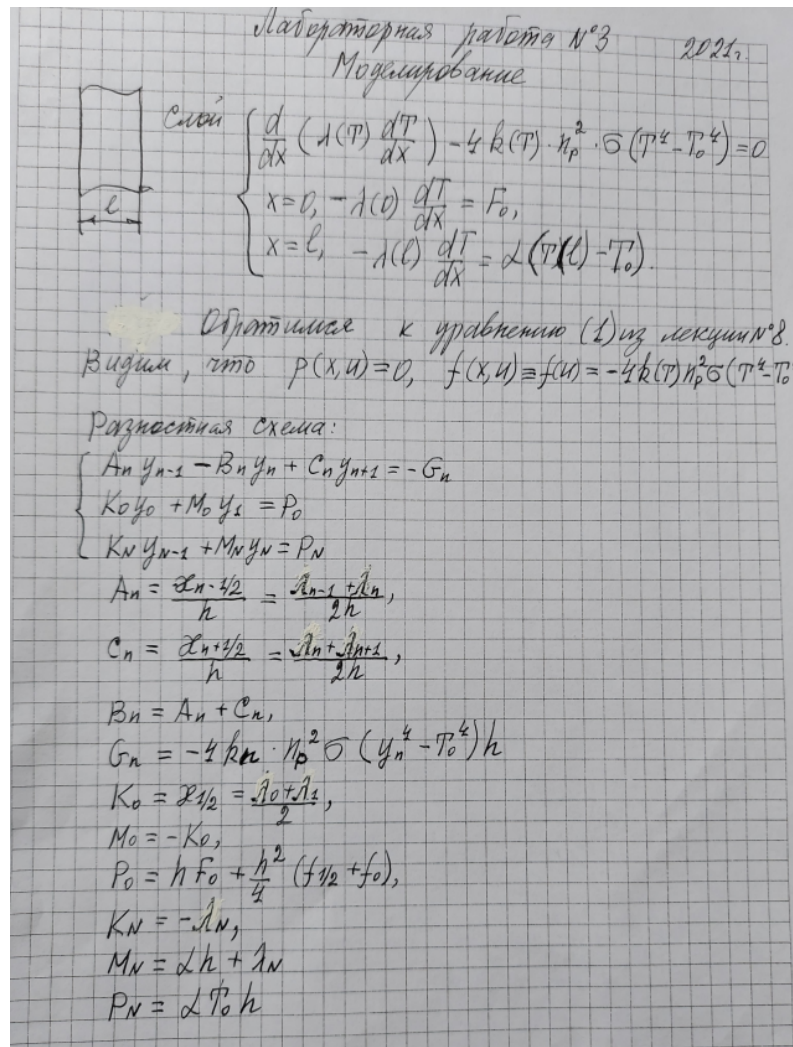 Лабораторная работа №3 2021г.
Моделирование
Слой
d/dx (λ(T) dT/dx) - 4 k(T) · n_p^2 · σ(T^4 - T_0^4) = 0
x=0, -λ(0) dT/dx = F_0,
x=l, -λ(l) dT/dx = α(T(l) - T_0).
l
Обратимся к уравнению (1) из лекции №8.
Видим, что p(x,u)=0, f(x,u)≡f(u) = -4k(T)n_p^2σ(T^4-T_0
Разностная схема:
A_n y_{n-1} - B_n y_n + C_n y_{n+1} = -G_n
K_0 y_0 + M_0 y_1 = P_0
K_N y_{N-1} + M_N y_N = P_N
A_n = æ_{n-1/2}/h = (λ_{n-1} + λ_n)/2h,
C_n = æ_{n+1/2}/h = (λ_n + λ_{n+1})/2h,
B_n = A_n + C_n,
G_n = -4 k_n · n_p^2 σ (y_n^4 - T_0^4) h
K_0 = æ_{1/2} = (λ_0 + λ_1)/2,
M_0 = -K_0,
P_0 = h F_0 + h^2/4 (f_{1/2} + f_0),
K_N = -λ_N,
M_N = αh + λ_N
P_N = αT_0 h